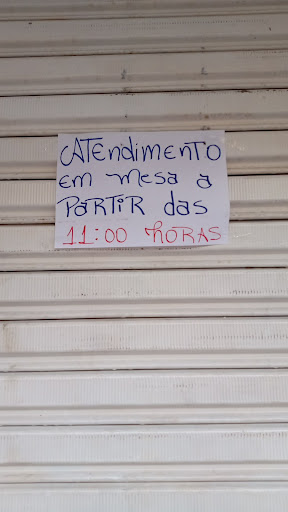 ATEndimENTO
Em mEsa a
PARTiR das
11:00 hORAS